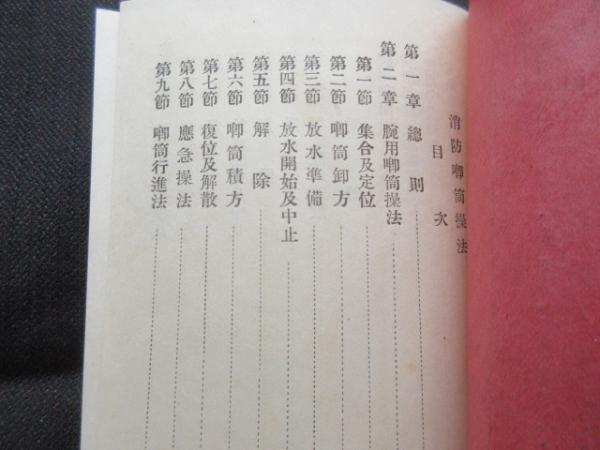 消防喞筒操法
目次
第一章 總則
第二章 腕用喞筒操法
第一節 集合及定位
第二節 喞筒卸方
第三節 放水準備
第四節 放水開始及中止
第五節 解除
第六節 喞筒積方
第七節 復位及解散
第八節 應急操法
第九節 喞筒行進法